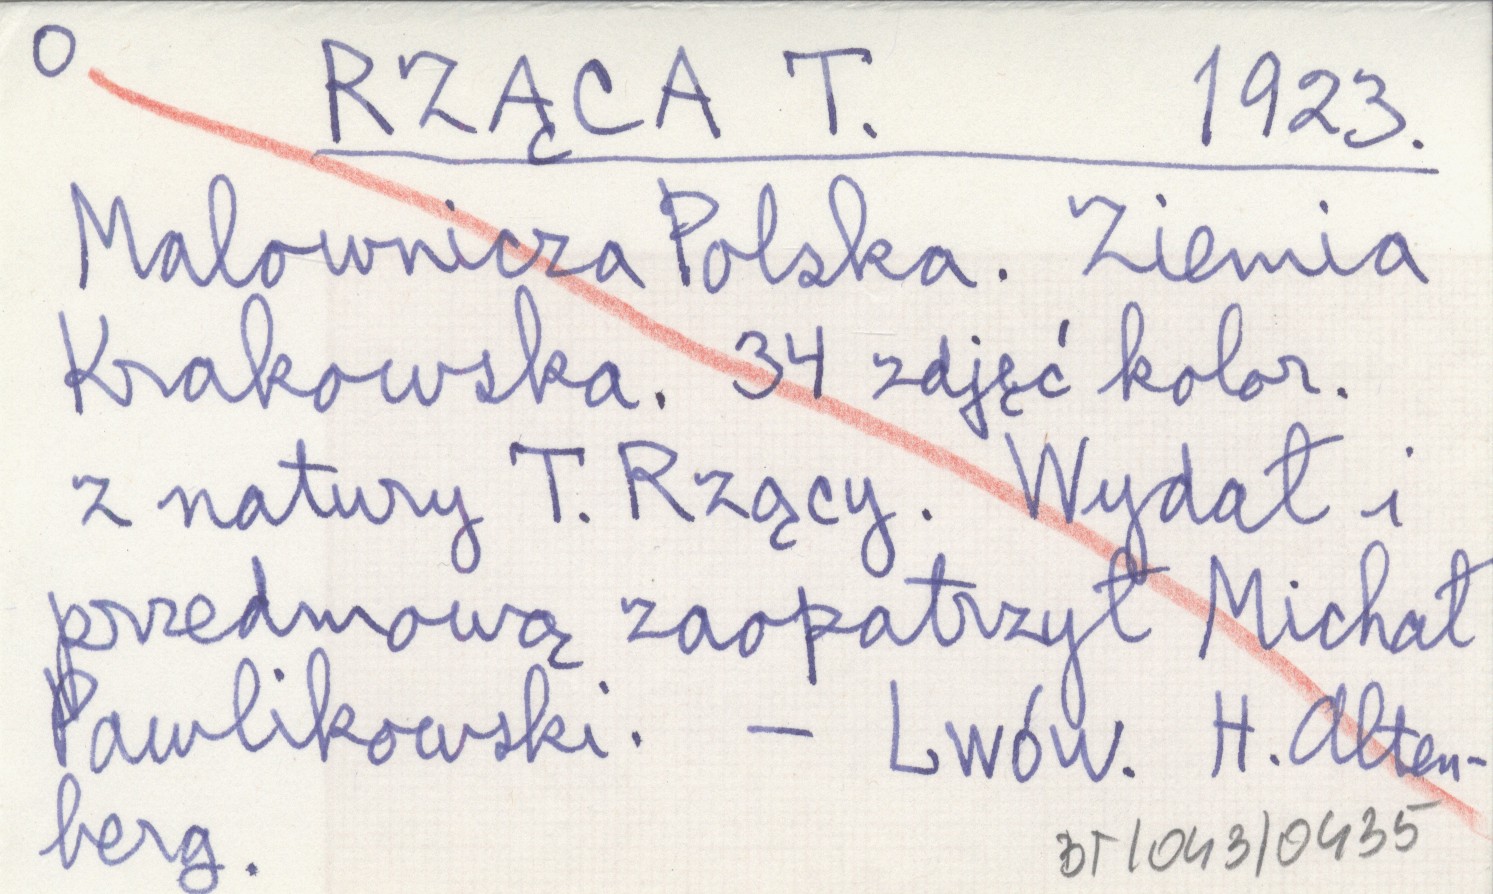 O RZĄCA T. 1923.
Malownicza Polska. Ziemia
Krakowska. 34 zdjęć kolor.
z natury T. Rzący. Wydał i
przedmową zaopatrzył Michał
Pawlikowski. — Lwów. H. Alten-
berg.
DT/043/0435